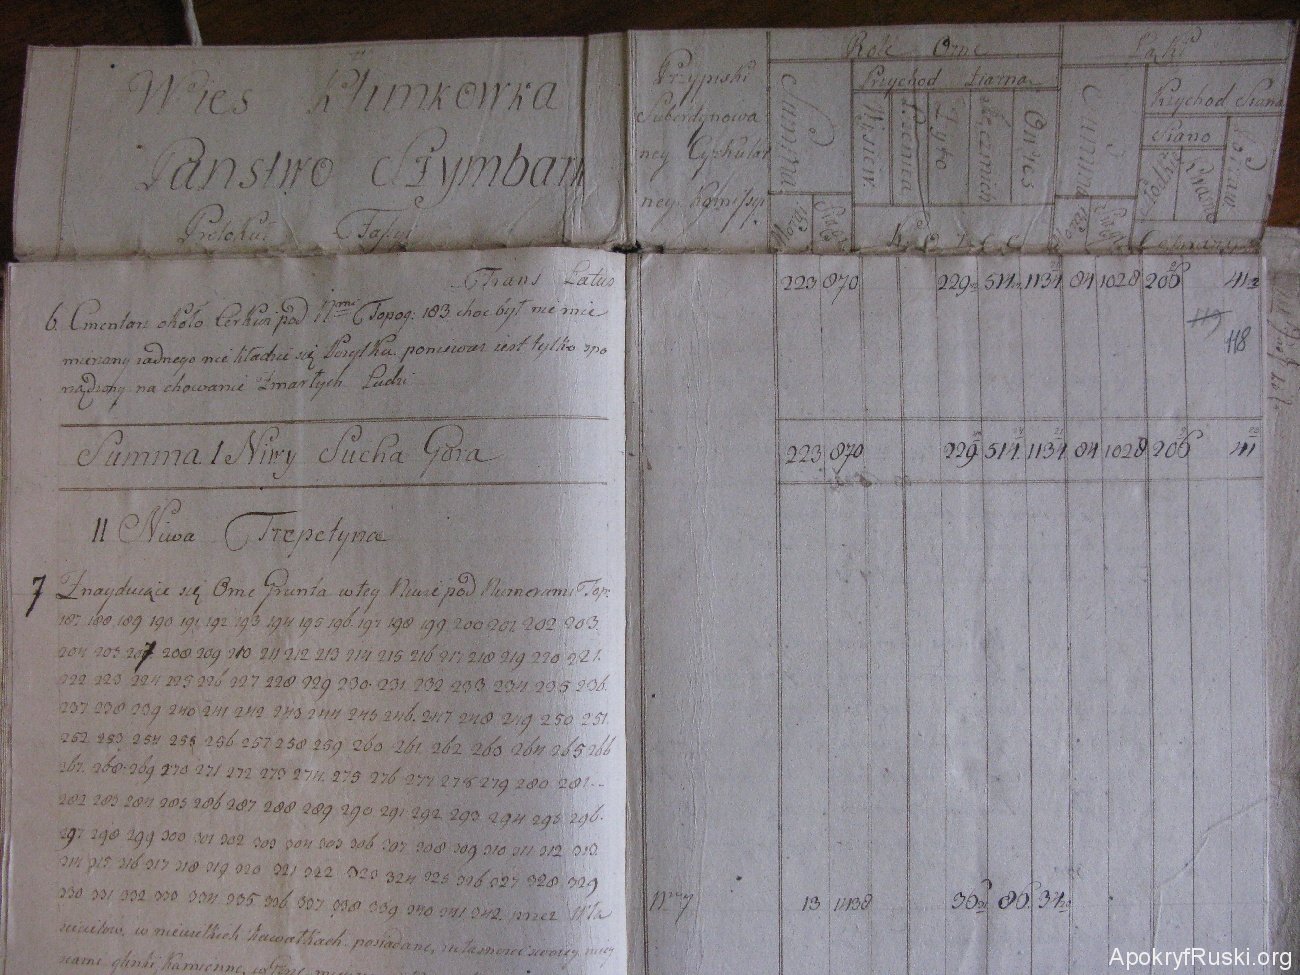 Wies Klimkowka
Panstwo Szymbark
Protokuł Fassyi
Przypiski
Suberdynowa
ney Cyrkular
ney
Role Orne
Łąki
Summa
Przychod Ziarna
Wysiew
Pszenica
Zyto
Ięczmien
Owies
Summa
Przychod Siana
Siano
Słodkie
Kwasne
Potraw
Korce
Cetnary
Trans Latus
223 870 229 514 1134 84 1028 206 41
6. Cmentarz około Cerkwi pod Nrmi Topog: 183 choc był nie mie
rzony zadnego nie kładzie się Pozytku poniewaz iest tylko spo
rządzony na chowanie Zmarłych Ludzi
119
118
Summa I Niwy Sucha Gora
223 870 229 514 1134 84 1028 206 41
II Niwa Trepetyna
7 Znayduiące się Orne Grunta w tey Niwie pod Numerami Top:
187. 188 189 190 191 192 193 194 195 196. 197 198 199. 200 201 202 203.
204 205 207 208 209 210 211 212 213 214 215 216 217 218 219 220 221.
222 223 224 225 226 227 228 229 230. 231 232 233 234. 235 236.
237 238 239 240 241 242 243 244 245 246. 247 248 249 250 251.
252 253 254 255 256 257 258 259 260 261. 262 263 264 265 266
267. 268. 269 270 271 272 273 274. 275 276 277 278 279 280 281.
282 283 284 285 286 287 288 289 290 291 292 293 294 295 296.
297 298 299 300 301 302 303 304 305 306 307 308 309 310 311 312 313.
314 315 316 317 318 319 320 321 322 323 324 325 326 327 328 329
330 331 332 333 334 335 336 337 338 339 340 341 342. przez Wła
scicielow, w niewielkich kawałkach posiadane,
same glinki kamienne,
Nro 7 13 1138 30 86 34
ApokryfRuski.org